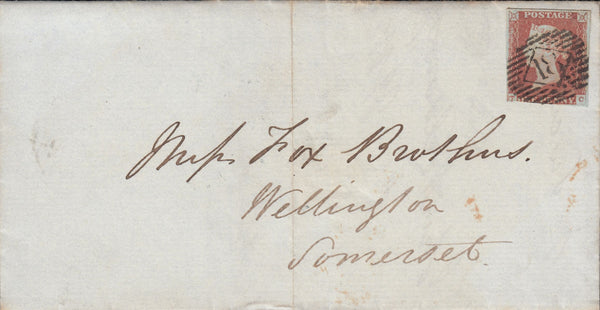 POSTAGE
Messrs Fox Brothers.
Wellington
Somerset.